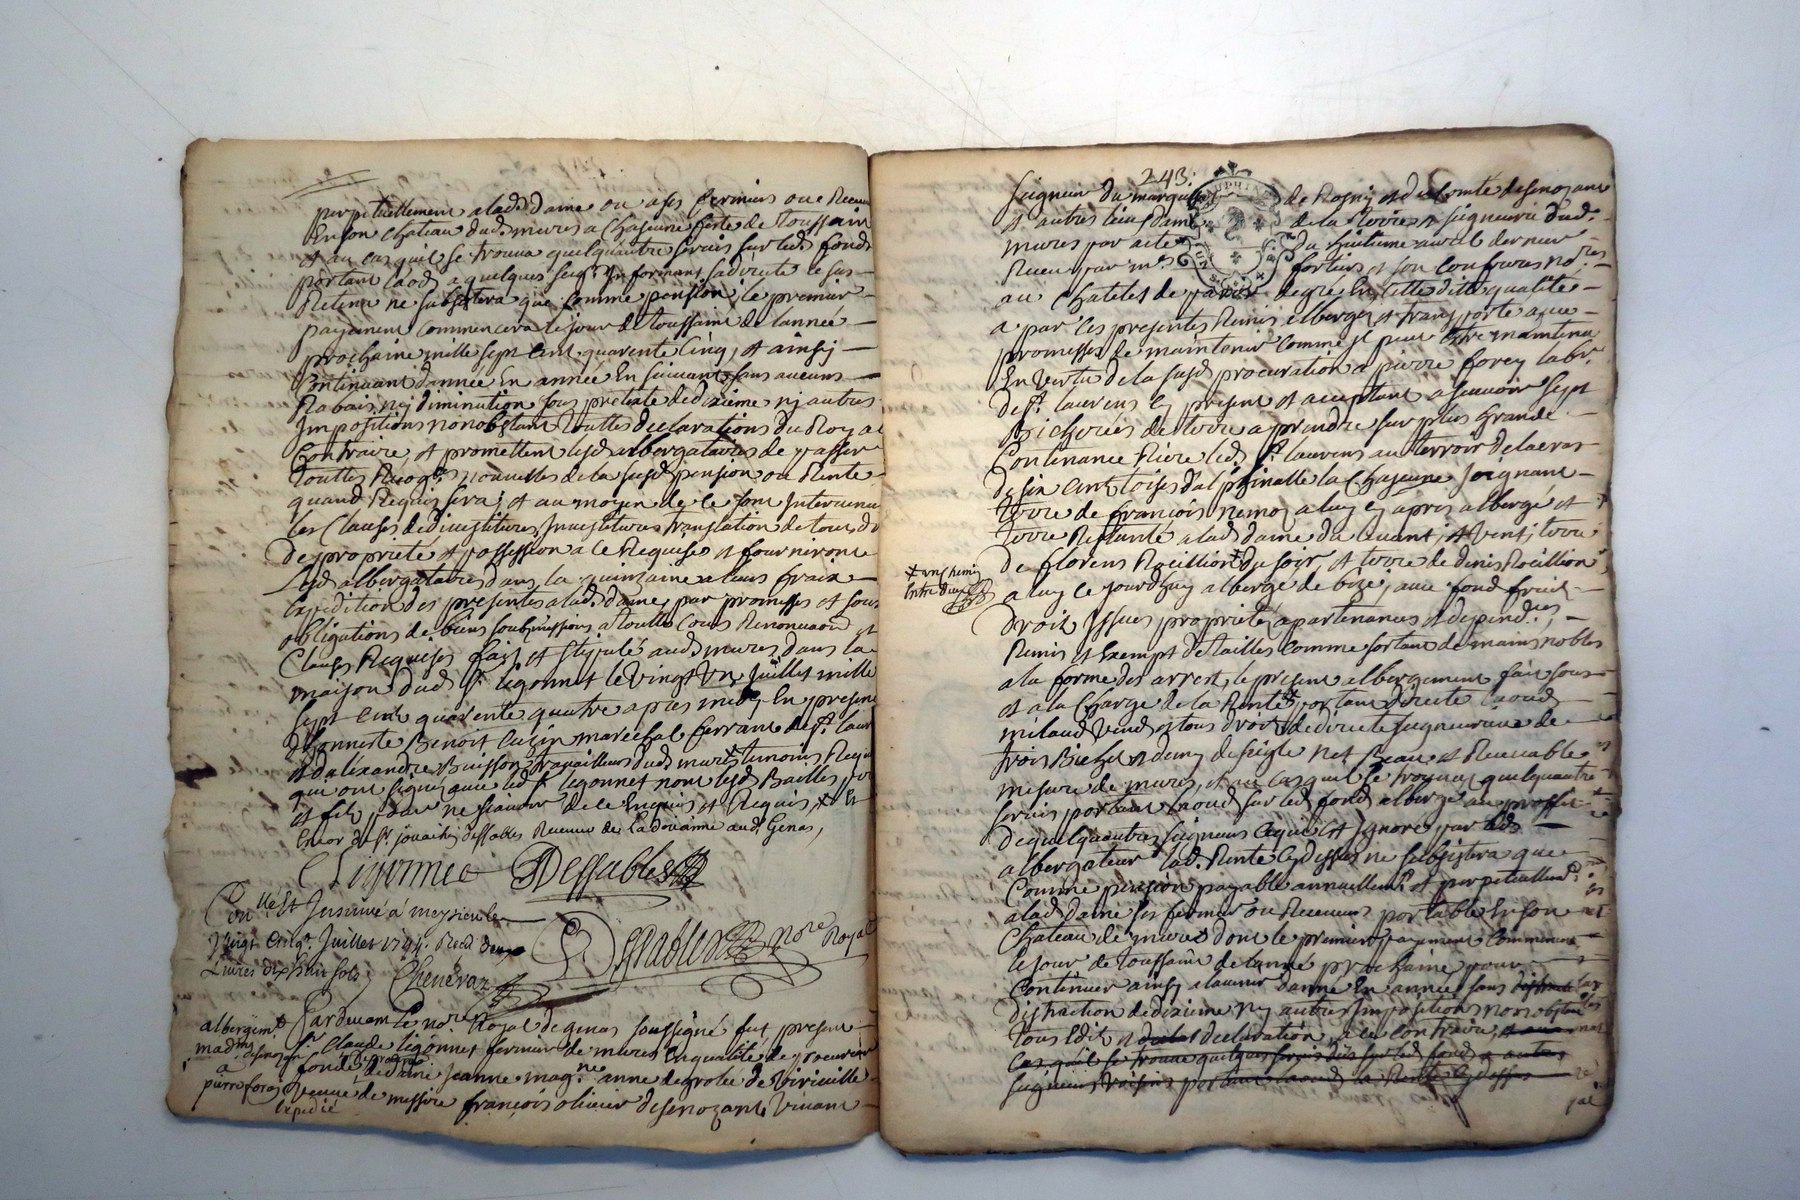 perpetuellement a lad. dame ou a ses fermiers ou Receveurs
En son Chateau dud. mures a Chascune feste de toussaint
et au cas quil se trouva quelquautre servis sur led. fonds
portant laods a quelques seig.rs Informant sa directe le sus
Retenu ne subsistera que comme pension, le premier
payement Commencera le jour de toussaint de lannée
prochaine mille sept cent quarente Cinq, et ainsy
Continuant dannée En année En suivant sans aucuns
Rabais, ny diminution sous pretexte de dixième ny autres
Impositions nonobstant touttes declarations du Roy a
Contraire, et promettent lesd. albergataires de passer
touttes Recog.ces nouvelles de la susd. pension ou Rente
quand Requis sera; et au moyen de ce sont Intervenus
les Clauses de divestitures, Investitures translation de tous dr
de proprieté et possession a ce Requises et fourniront
Lesd. albergataires dans la quinzaine a leurs fraix
Expedition des presentes a lad. dame, par promesses et sous
obligations de biens soubmissions a touttes Cours Renonciaon et
Clauses Requises fait et stipulé aud. mures dans la
maison dud. Sr. Ligonnet le vingt un juillet mille
sept cent quarente quatre apres midy En presence
dhonneste Benoit Cuzin marechal ferrant de St. laur
et dalexandre Buisson travailleur dud. mures temoins Requis
qui ont signé avec led. Sr. Ligonnet non lesd. Bailles per
et fils pour ne scavoir de ce Enquis et Requis, Et
Encor de Sr. joachin dessables Receveur de La douanne aud. Genas,
Ligonnet Dessables
Con.llé et Insinué a meyzieu le
vingt cinq.e Juillet 1744. Reçu deux
Livres dix huit sols
Chenevaz
Desrables nore Royal
albergem.t
mad.me
desnozan
a
pierre forey
Expedié
Pardevant le no.re Royal de genas soussigné fut present
Sr. Claude Ligonnet fermier de mures En qualité de procureur
fondé de dame jeanne mag.ne anne de grolée de Virieville
veuve de messire françois olivier de senozant, vivant
243.
Seigneur du marquisat de Rosny et du Comté de senozant
et autres lieux Dame de la terre et seigneurie dud.
mures par acte du huitieme avril dernier
Receu par m.es fortier et son confreres no.res
au Chatelet de paris, de gre En cette ditte qualité
a par les presentes Remis albergé et transporté avec
promesses de maintenir comme Il peut Etre maintenu
En vertu de la susd. procuration a pierre forey lab.r
de St. laurens cy present et acceptant a scavoir sept
bicherées de terre a prendre sur plus Grande
Contenance Riere led. St. laurens au terroir de la cras
de six cent toises dalphinalle la Chascune joignant
terre de françois nemoz a luy cy apres albergé et
terre Restante a lad. dame du levant, et vent, terre
de florens Rouillion du soir, et terre de denis Rouillion
a luy ce jourdhuy albergé de bize, avec fond fruit
x un chemin
Entre deux
Droit Issues proprietés apartenances et depend.ces,
Remis et Exempt de tailles comme sortant de mains nobles
a la forme des arrest, le present albergement fait sous
et a la Charge de la Rente portant directe laoud
milaud Vend et tous droits de directe seigneurie de
trois Bichet et demy de seigle net Beau et Recevable
mesure de mures, et au cas quil se trouva quelquautre
servis portant laoud sur led. fond albergé au proffit
de quelquautre seigneurs ce qui Est Ignoré par led.
albergateur lad. Rente Cy dessus ne subsistera que
Comme pension payable annuellem.t et perpetuellem.t
a lad. dame ses fermier ou Receveur portable En son
Chateau de mures dont le premier payement commencera
le jour de toussaint de lanné prochaine pour
Continuer ainsy a lavenir danné En année sans
distraction de dixieme ny autres Impositions nonobstant
tous Edit et declaration a ce contraire,
cas quil se trouve quelques servis dus sur led. fond a autres
seigneurs voisins portant laoud la Rente Cy dessus